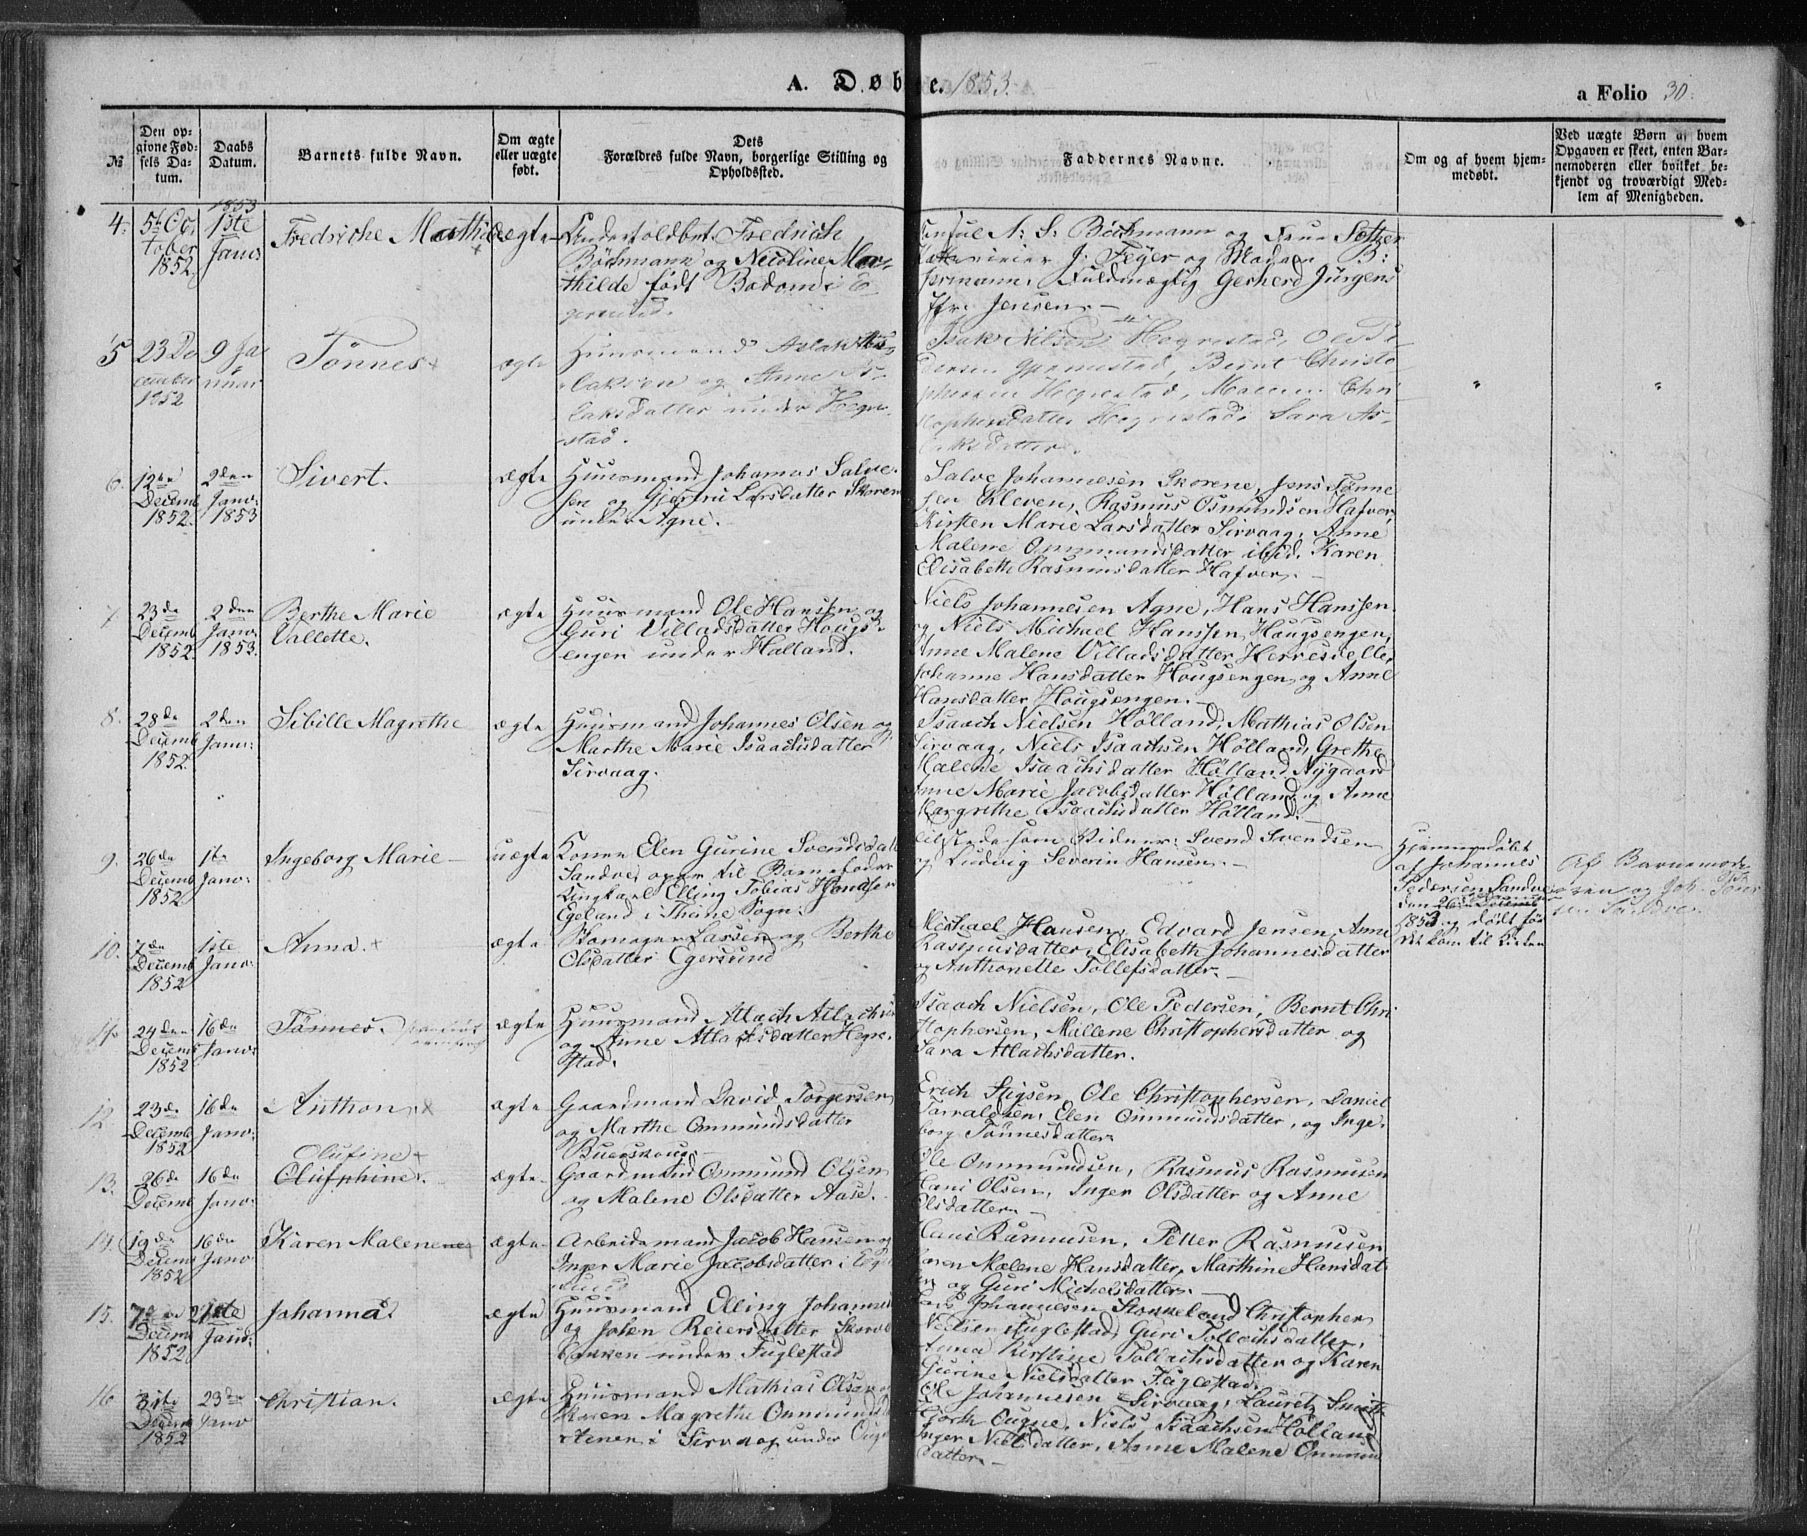 A. Døbte. 1853.
a Folio 30.
№
Den opgivne Fødsels Datum.
Daabs Datum.
Barnets fulde Navn.
Om ægte eller uægte født.
Dets Forældres fulde Navn, borgerlige Stilling og Opholdssted.
Faddernes Navne.
Om og af hvem hjemmedøbt.
Ved uægte Børn af hvem Opgaven er skeet, enten Barnemoderen eller hvilket bekjendt og troværdigt Medlem af Menigheden.
1853
4. 5te October 1852. 1ste Janr Fredriche Mathilde ægte
Underfoldbet. Fredrich
Bøchmann og Nicoline Mathilde
født Bodom i Egersund.
Consul N: S: Bøchmann og Frue
J: Feyer og Madam B:
Fuldmægtig Gerherd Jürgens
Jfr: Jensen.
5 23 December 1852 9 Januar Tønnes ægte
Huusmand Aslak Aslaksen
og Anne Aslaksdatter
under Hegrestad.
Isak Nilsen Hegrestad, Ole Pedersen
Gjermestad, Bernt Christophersen
Hegrestad, Malene Christophersdatter
Hegrestad, Sara Aslaksdatter.
6. 12te Decemb 1852. 2den Janv. 1853 Sivert. ægte
Huusmand Johannes Salvesen
og Gjertru Larsdatter Skoren
under Agne.
Salve Johannesen Skorene, Jens Tønnesen
Kleven, Rasmus Osmundsen Hafver,
Kirsten Marie Larsdatter Sirvaag, Anne
Malene Ommundsdatter ibid. Karen
Elisabeth Rasmusdatter Hafver.
7. 23de Decemb 1852. 2den Janv. 1853. Berthe Marie Vallette. ægte
Huusmand Ole Hansen og
Guri Villadsdatter Hougsengen
under Hølland.
Niels Johannesen Agne, Hans Hanssen
og Niels Michael Hanssen Hougsengen,
Anne Malene Villadsdatter Herresdelle,
Johanne Hansdatter Hougsengen og Anne
Hansdatter Hougsengen.
8. 28de Decemb 1852. 2den Janv: Sibille Magrethe ægte
Huusmand Johannes Olsen og
Marthe Marie Isaachsdatter
Sirvaag.
Isaach Nielsen Hølland, Mathias Olsen
Sirvaag, Niels Isaachsen Hølland, Grethe
Malene Isaachsdatter Hølland Nygaard
Anne Marie Jacobsdatter Hølland og Anne
Margrethe Isaachsdatter Hølland.
9. 26de Decemb 1852 1te Janv: Ingeborg Marie uægte
Konen Elen Gurine Svendsdatter
Sandve, oper til Barnefader
Ungkarl Elling Tobias Hansen
Egeland i Theine Sogn.
tilstede som Vidner: Svend Svendsen
og Ludvig Severin Hansen.
Hjemmedøbt
af Johannes
Pedersen Sandve
den
1853 og døbt før
det kom til Kirken
Af Barnemoderen
og Joh. Pedersen
Sandve.
10. 7de Decemb 1852 1ste Janv: Anna. ægte
Skomager Larsen og Berthe
Olsdatter Egersund
Michael Hansen, Edvard Jensen, Anne
Rasmusdatter, Elisabeth Johannesdatter
og Anthonette Tollefsdatter.
11. 24den Decemb 1852 16de Janv: Tønnes. ægte
Huusmand Atlach Atlachsen
og Anne Atlachsdatter Hegrestad.
Isaach Nielsen, Ole Pedersen, Bernt Christophersen,
Mallene Christophersdatter og
Sara Atlachsdatter.
12 23de Decemb 1852 16de Janv: Anthon ægte
Gaardmand David Torgersen
og Marthe Ommundsdatter
Buerskoug.
Erich Stigsen, Ole Christophersen, Daniel
Torvaldsen, Elen Ommundsdatter, og Ingeborg
Tønnesdatter.
Olufine
13. 26de Decemb 16de Janv: Olufphine. ægte
Gaardmand Ommund Olsen
og Malene Olsdatter Aase.
Ole Ommundsen, Rasmus Rasmusen
Hans Olsen, Inger Olsdatter og Anne
Olsdatter.
14. 19de Decemb 1852 16de Janv: Karen Malene ægte
Arbeidsmand Jacob Hansen og
Inger Marie Jacobsdatter i Egersund
Claus Rasmusen, Petter Rasmusen
Karen Malene Hansdatter, Marthine Hansdatter
og Guri Michelsdatter.
15. 7de Decemb 1852 21ste Janv: Johanna. ægte
Huusmand Elling Johannesen
og Johen Reiersdatter Skorvbakken
under Fuglestad
Johannesen Stokkeland Christopher
Nielsen Fuglestad, Guri Tollachsdatter,
Anna Kirstine Tollachsdatter og Karen
Gurine Nielsdatter Fuglestad.
16 31te Decemb 1852 23de Janv Christian. ægte
Huusmand Mathias Olsen og
Karen Magrethe Ommundsdatter
Stenen i Sirvaag under Ougne
Ole Johannesen Sirvaag, Lauretz Smith
Hjorth Ougne, Niels Isaachsen Hølland
Inger Nielsdatter, Anne Malene Ommundsdatter.